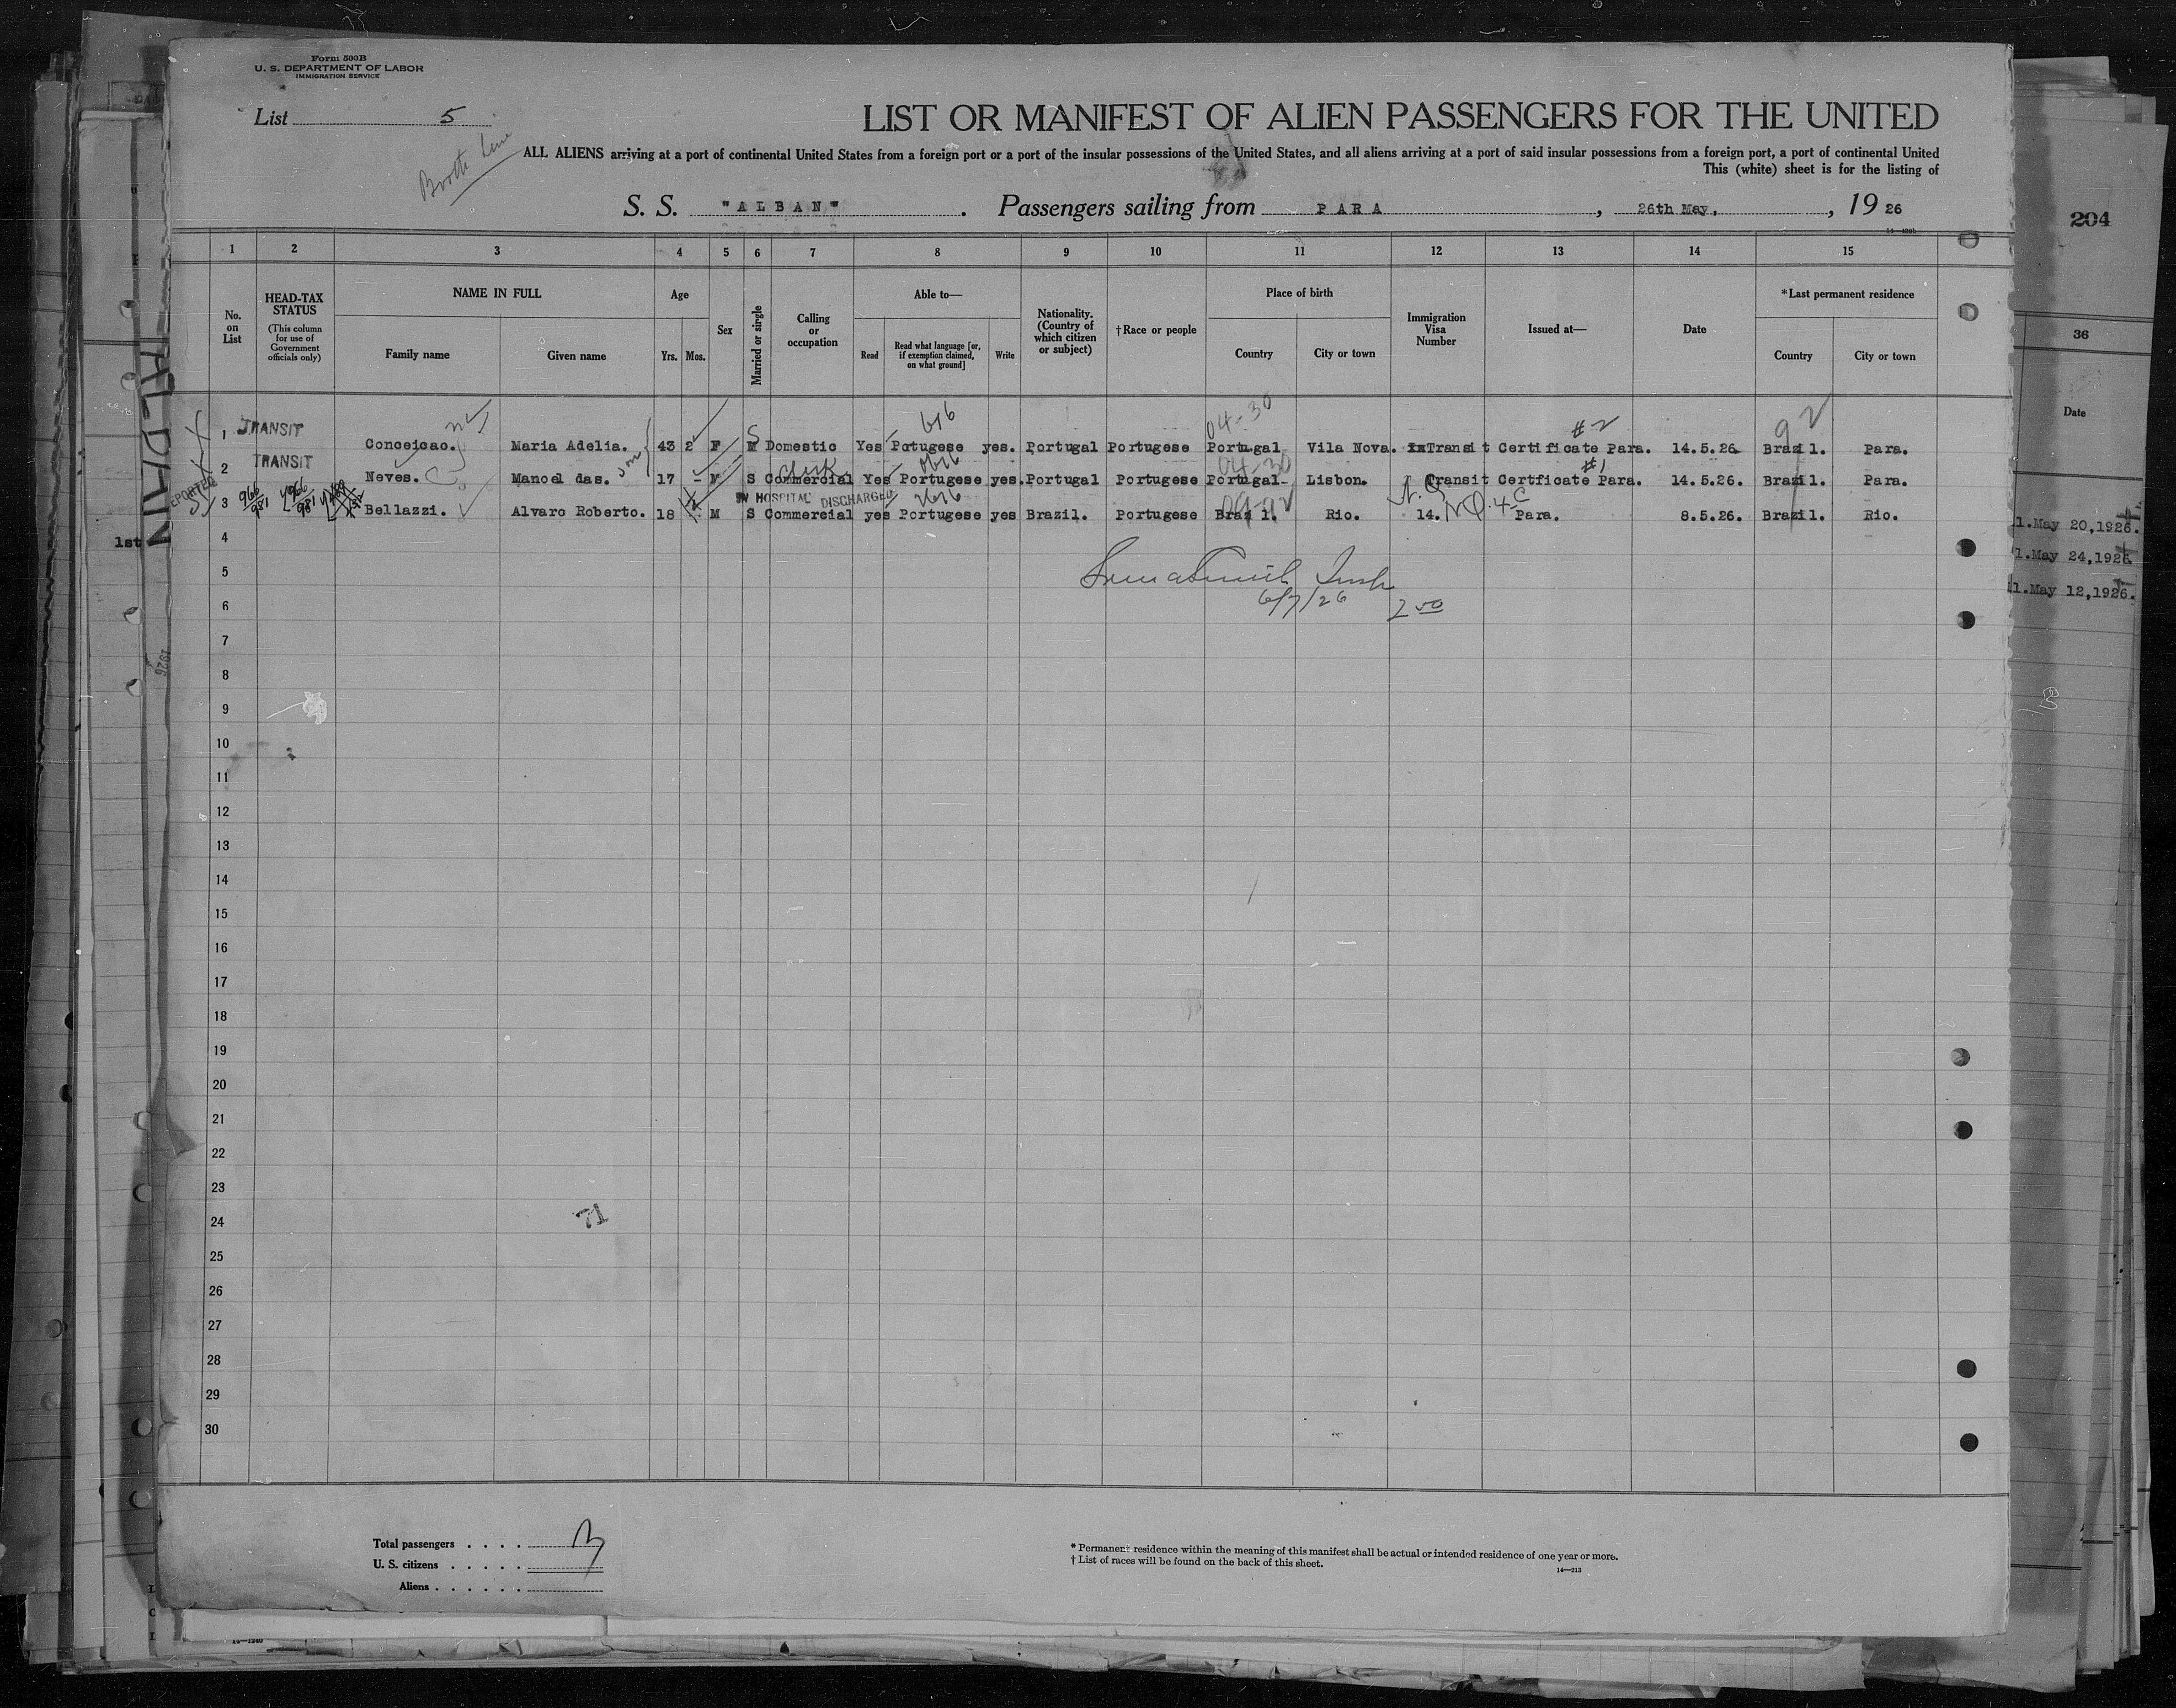 Form 500B
U. S. DEPARTMENT OF LABOR
IMMIGRATION SERVICE
List 5
LIST OR MANIFEST OF ALIEN PASSENGERS FOR THE UNITED
ALL ALIENS arriving at a port of continental United States from a foreign port or a port of the insular possessions of the United States, and all aliens arriving at a port of said insular possessions from a foreign port, a port of continental United
This (white) sheet is for the listing of
S. S. "ALBAN" . Passengers sailing from PARA , 26th May, , 19 26
204
1 2 3 4 5 6 7 8 9 10 11 12 13 14 15
36
No. on List
HEAD-TAX STATUS
(This column for use of Government officials only)
NAME IN FULL
Family name
Given name
Age
Yrs. Mos.
Sex
Married or single
Calling or occupation
Able to—
Read
Read what language [or, if exemption claimed, on what ground]
Write
Nationality. (Country of which citizen or subject)
†Race or people
Place of birth
Country
City or town
Immigration Visa Number
Issued at—
Date
*Last permanent residence
Country
City or town
Date
6/6 04-30 #2 92
1 TRANSIT Conceicao. Maria Adelia. 43 2 F M S Domestic Yes Potugese yes. Portugal Portugese Portugal Vila Nova. Transit Certificate Para. 14.5.26. Brazil. Para.
Clerk 04-30 #1
2 TRANSIT Neves. Manoel das. son 17 - M S Commercial Yes Portugese yes. Portugal Portugese Portugal Lisbon. Transit Certficate Para. 14.5.26. Brazil. Para.
IN HOSPITAL DISCHARGED
3 966/981 Bellazzi. Alvaro Roberto. 18 M S Commercial yes Portugese yes Brazil. Portugese Brazil. Rio. 14. N.Q. 4c Para. 8.5.26. Brazil. Rio.
1.May 20,1926.
1st
4
1.May 24,1926.
5
1.May 12,1926.
6/7/26 2 50
6
7
8
9
10
11
12
13
14
15
16
17
18
19
20
21
22
23
24
25
26
27
28
29
30
Total passengers . . . . 3
U. S. citizens . . . . .
Aliens . . . . . .
* Permanent residence within the meaning of this manifest shall be actual or intended residence of one year or more.
† List of races will be found on the back of this sheet.
14—213
14—1240